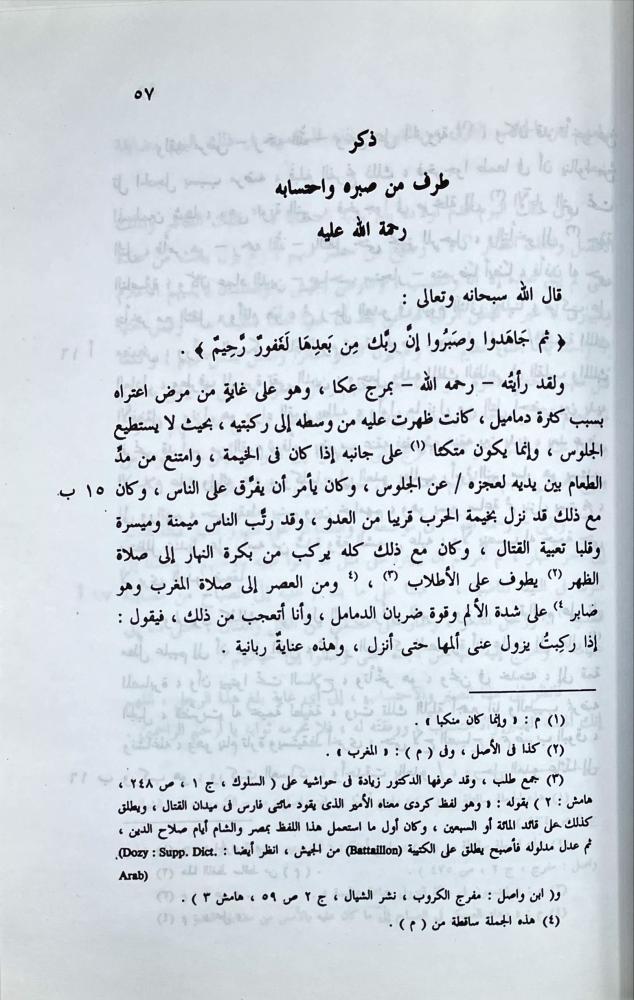 ٥٧
ذكر
طرف من صبره واحتسابه
رحمة الله عليه
قال الله سبحانه وتعالى :
﴿ ثم جَاهَدوا وصَبَرُوا إنَّ ربَّك مِن بَعدِهَا لَغَفورٌ رَّحِيمٌ ﴾ .
ولقد رأيتُه – رحمه الله – بمرج عكا ، وهو على غايةٍ من مرض اعتراه
بسبب كثرة دماميل ، كانت ظهرت عليه من وسطه إلى ركبتيه ، بحيث لا يستطيع
الجلوس ، وإنما يكون متكئا (١) على جانبه إذا كان فى الخيمة ، وامتنع من مدِّ
الطعام بين يديه لعجزه / عن الجلوس ، وكان يأمر أن يفرَّق على الناس ، وكان ١٥ ب
مع ذلك قد نزل بخيمة الحرب قريبا من العدو ، وقد رتَّب الناس ميمنة وميسرة
وقلبا تعبية القتال ، وكان مع ذلك كله يركب من بكرة النهار إلى صلاة
الظهر (٢) يطوف على الأطلاب (٣) ، (٤ ومن العصر إلى صلاة المغرب وهو
صابر ٤) على شدة الألم وقوة ضربان الدمامل ، وأنا أتعجب من ذلك ، فيقول :
إذا ركبتُ يزول عنى ألمها حتى أنزل ، وهذه عنايةٌ ربانية .
(١) م : « وإنما كان منكبا » .
(٢) كذا فى الأصل ، وفى ( م ) : « المغرب » .
(٣) جمع طلب ، وقد عرفها الدكتور زيادة فى حواشيه على ( السلوك ، ج ١ ، ص ٢٤٨ ،
هامش : ٢ ) بقوله : « وهو لفظ كردى معناه الأمير الذى يقود مائتى فارس فى ميدان القتال ، ويطلق
كذلك على قائد المائة أو السبعين ، وكان أول ما استعمل هذا اللفظ بمصر والشام أيام صلاح الدين ،
ثم عدل مدلوله فأصبح يطلق على الكتيبة (Battaillon) من الجيش ، انظر أيضا : (Dozy : Supp. Dict.
Arab)
و( ابن واصل : مفرج الكروب ، نشر الشيال ، ج ٢ ص ٥٩ ، هامش ٣ ) .
(٤) هذه الجملة ساقطة من ( م ) .